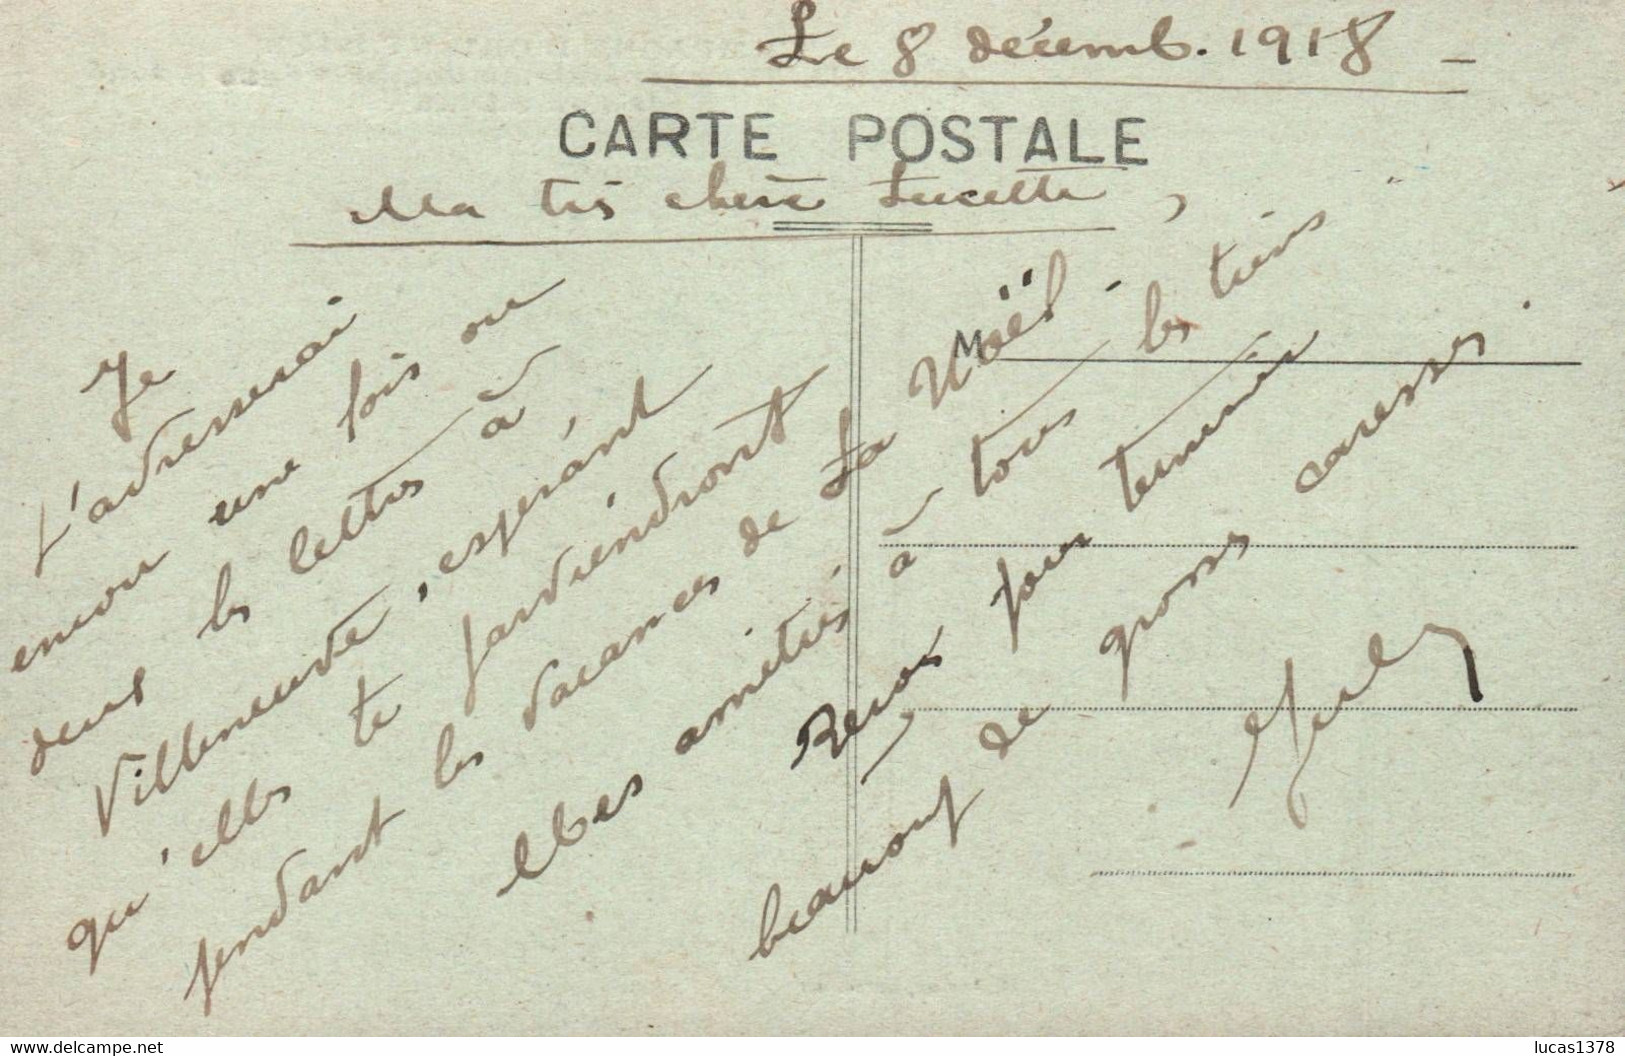 Le 8 décemb. 1918 -
CARTE POSTALE
Ma très chère Lucette,
Je
t'adresserai
encore une fois ou
deux les lettres à
Villeneuve, espérant
qu'elles te parviendront
pendant les vacances de La Noël.
Mes amitiés à tous les tiens
Reçois pour terminer
beaucoup de grosses caresses.
M
www.delcampe.net
lucas1378